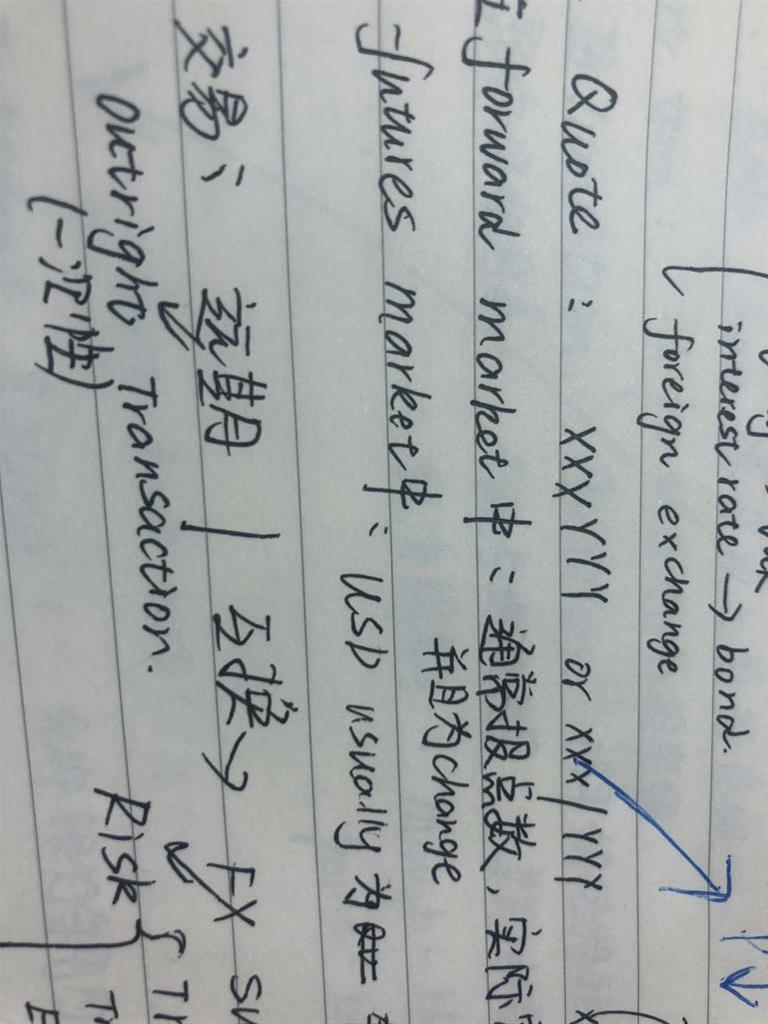 interest rate → bond.
foreign exchange
Quote: XXXYYY or XXX/YYY
forward market中: 通常报点数, 实际
并且为change
-futures market中: USD usually 为
交易: 远期 | 互换 → FX
Outright Transaction. Risk {
(一次性)
P↓